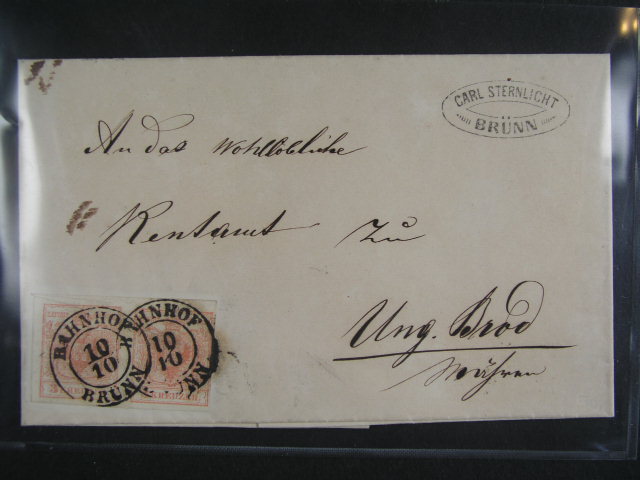 CARL STERNLICHT
BRÜNN
An das Wohllöbliche
Rentamt zu
Ung. Brod
Mähren
BAHNHOF
10
10
BRÜNN
BAHNHOF
10
10
KREUZER